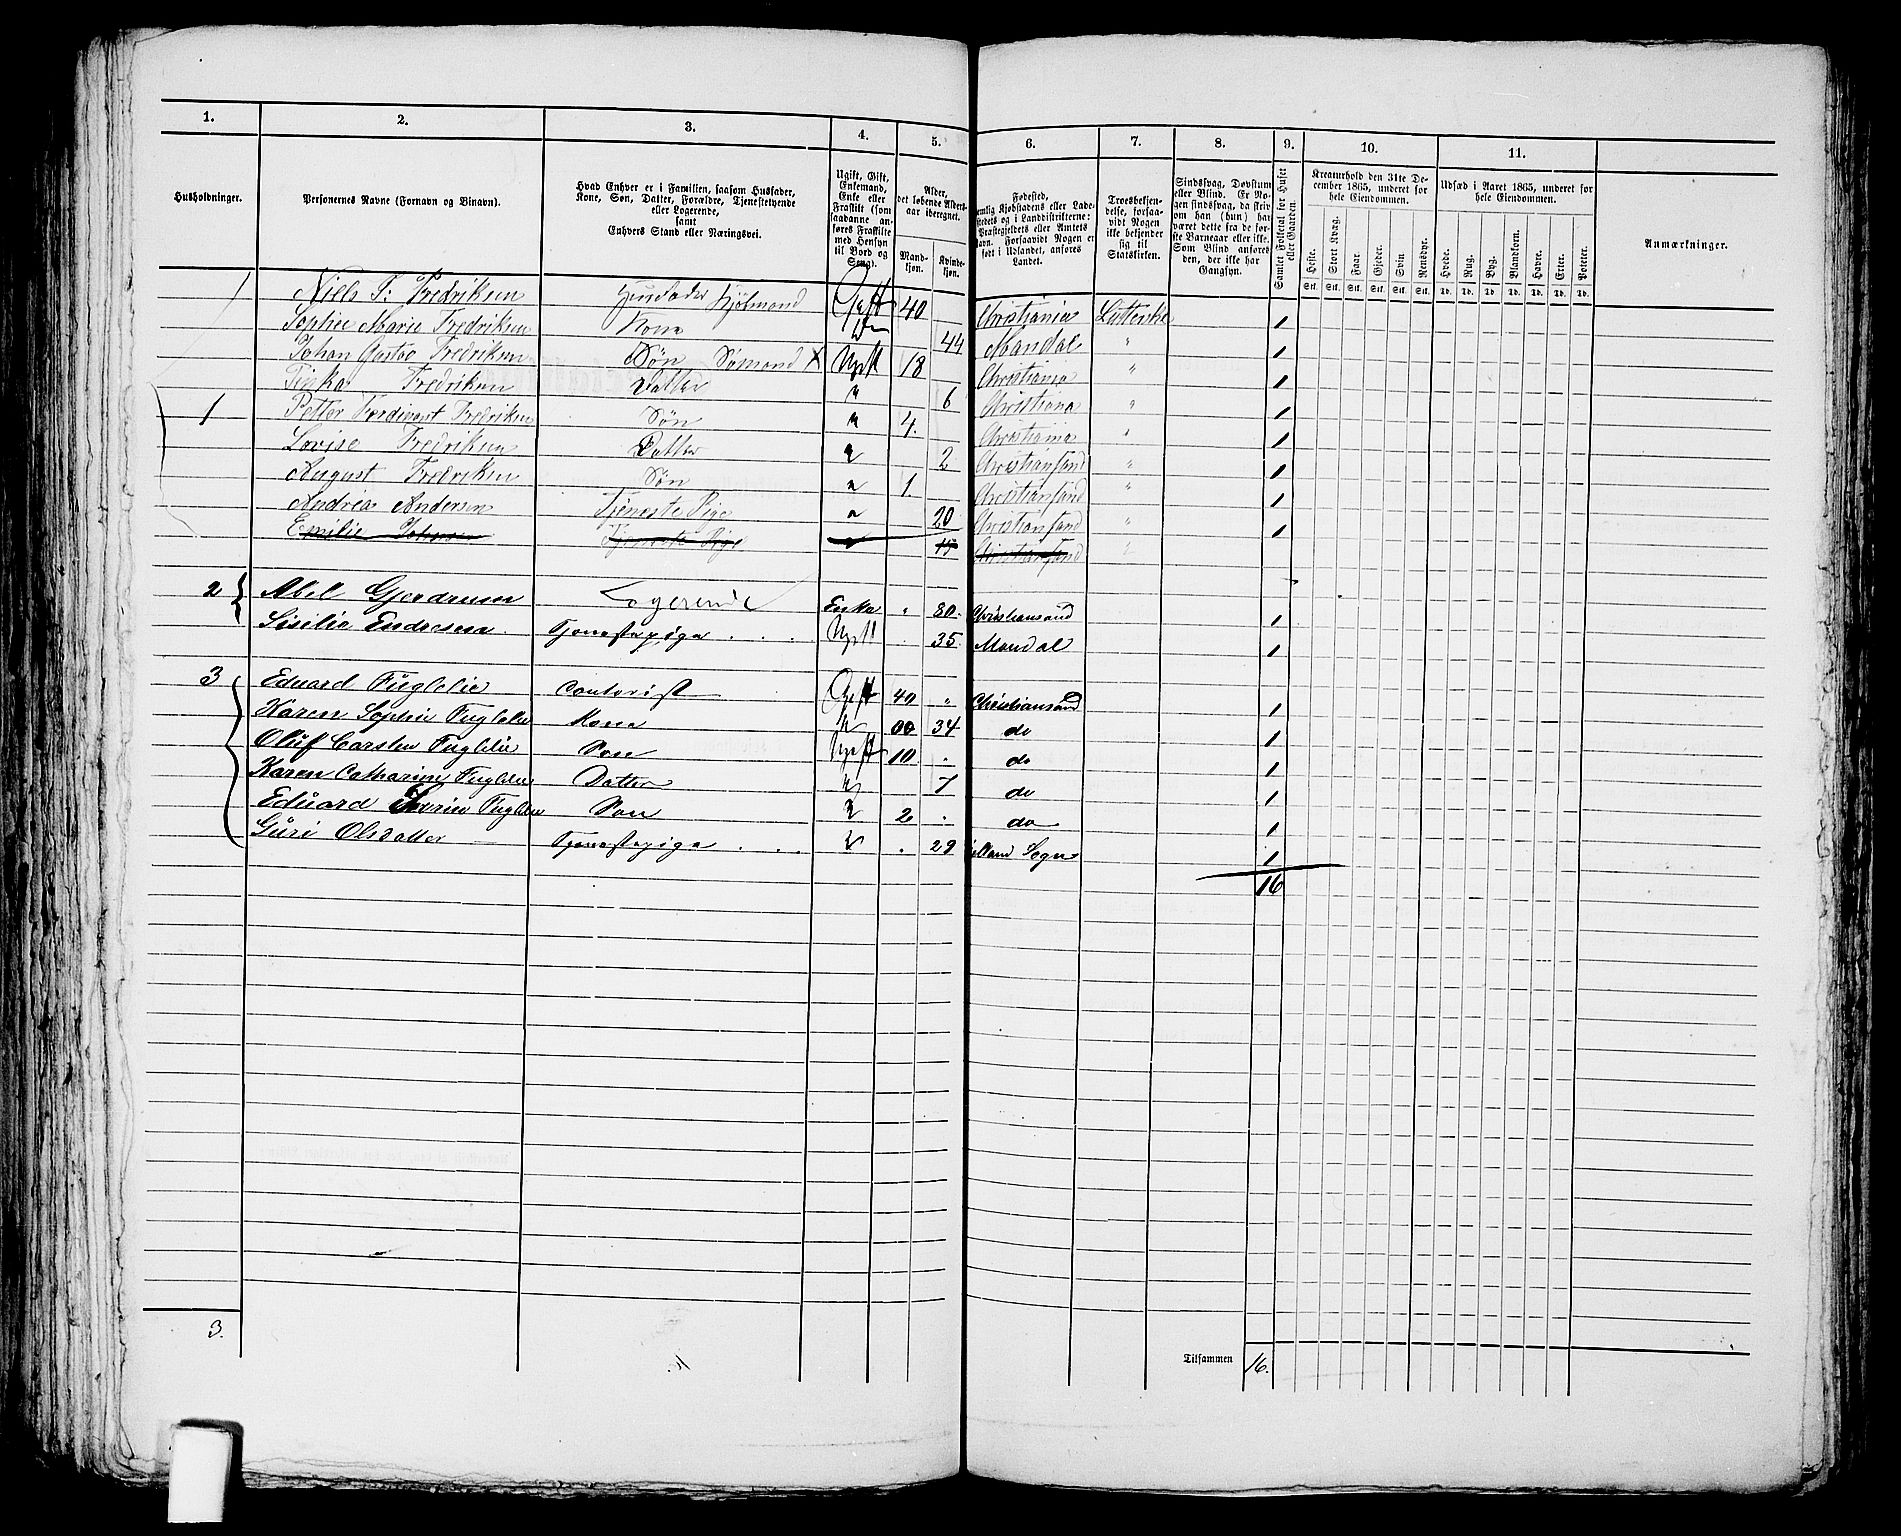 1. 2. 3. 4. 5. 6. 7. 8. 9. 10. 11.
Husholdninger.
Personernes Navne (Fornavn og Binavn).
Hvad Enhver er i Familien, saasom Husfader, Kone, Søn, Datter, Forældre, Tjenestetyende eller Logerende, samt Enhvers Stand eller Næringsvei.
Ugift, Gift, Enkemand, Enke eller Fraskilt (som saadanne anføres Fraskilte med Hensyn til Bord og Seng).
Alder, det løbende Aldersaar iberegnet.
Mandkjøn. Kvindekjøn.
Fødested,
emlig Kjøbstadens eller Ladestedets og i Landdistrikterne: Præstegjeldets eller Amtets Navn. Forsaavidt Nogen er født i Udlandet, anføres Landet.
Troesbekjendelse, forsaavidt Nogen ikke bekjender sig til Statskirken.
Sindssvag, Døvstum eller Blind. Er Nogen sindssvag, da skrives om han (hun) har været dette fra de første Barneaar eller ikke. Som Blind anføres den, der ikke har Gangsyn.
Samlet Folketal for Huset eller Gaarden.
Kreaturhold den 31te December 1865, underet for hele Eiendommen.
Heste. Stort Kvæg. Faar. Gjeder. Svin. Rensdyr.
Stk. Stk. Stk. Stk. Stk. Stk.
Udsæd i Aaret 1865, underet for hele Eiendommen.
Hvede. Rug. Byg. Blandkorn. Havre. Erter. Poteter.
Td. Td. Td. Td. Td. Td. Td.
Anmærkninger.
Niels P: Fredriksen Husfader Gift 40 Christiania 1
Sophie Marie Fredriksen Kone 44 Mandal " 1
Johan Gustav Fredriksen Søn Sømand X Ugift 18 Christiania " 1
Tinka Fredriksen Datter " 6 Christiania " 1
1 Petter Ferdinant Fredriksen Søn " 4. Christiania " 1
Lovise Fredriksen Datter " 2 Christiansand " 1
August Fredriksen Søn " 1. Christiansand " 1
Andrea Andersen Tjeneste Pige " 20 Christiansand " 1
Emilie Johnsen Tjeneste Pige " 15 Christiansand "
2 Abel Gjerdrum Logerende Enke " 80. Christiansand 1
Sisilie Endresen. Tjenestepige . . . Ugift . 35. Mandal 1
3 Eduard Fuglelie Contorist Gift 40 " Christiansand 1
Karen Sophie Fuglelie Kone " 00 34 do 1
Oluf Carsten Fuglelie Søn Ugift 10 . do 1
Karen Catharine Fuglelie Datter " 7 do 1
Eduard Severin Fuglelie Søn " 2 . do 1
Guri Olsdatter Tjenestepige . . . " . 29 Sogn 1
16
3.
Tilsammen 16.